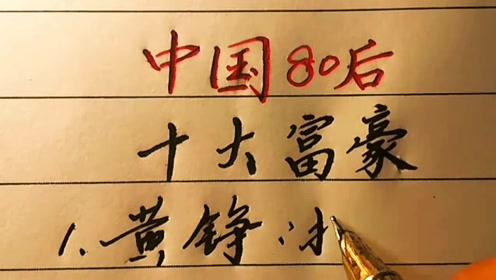 中国80后
十大富豪
1.黄铮